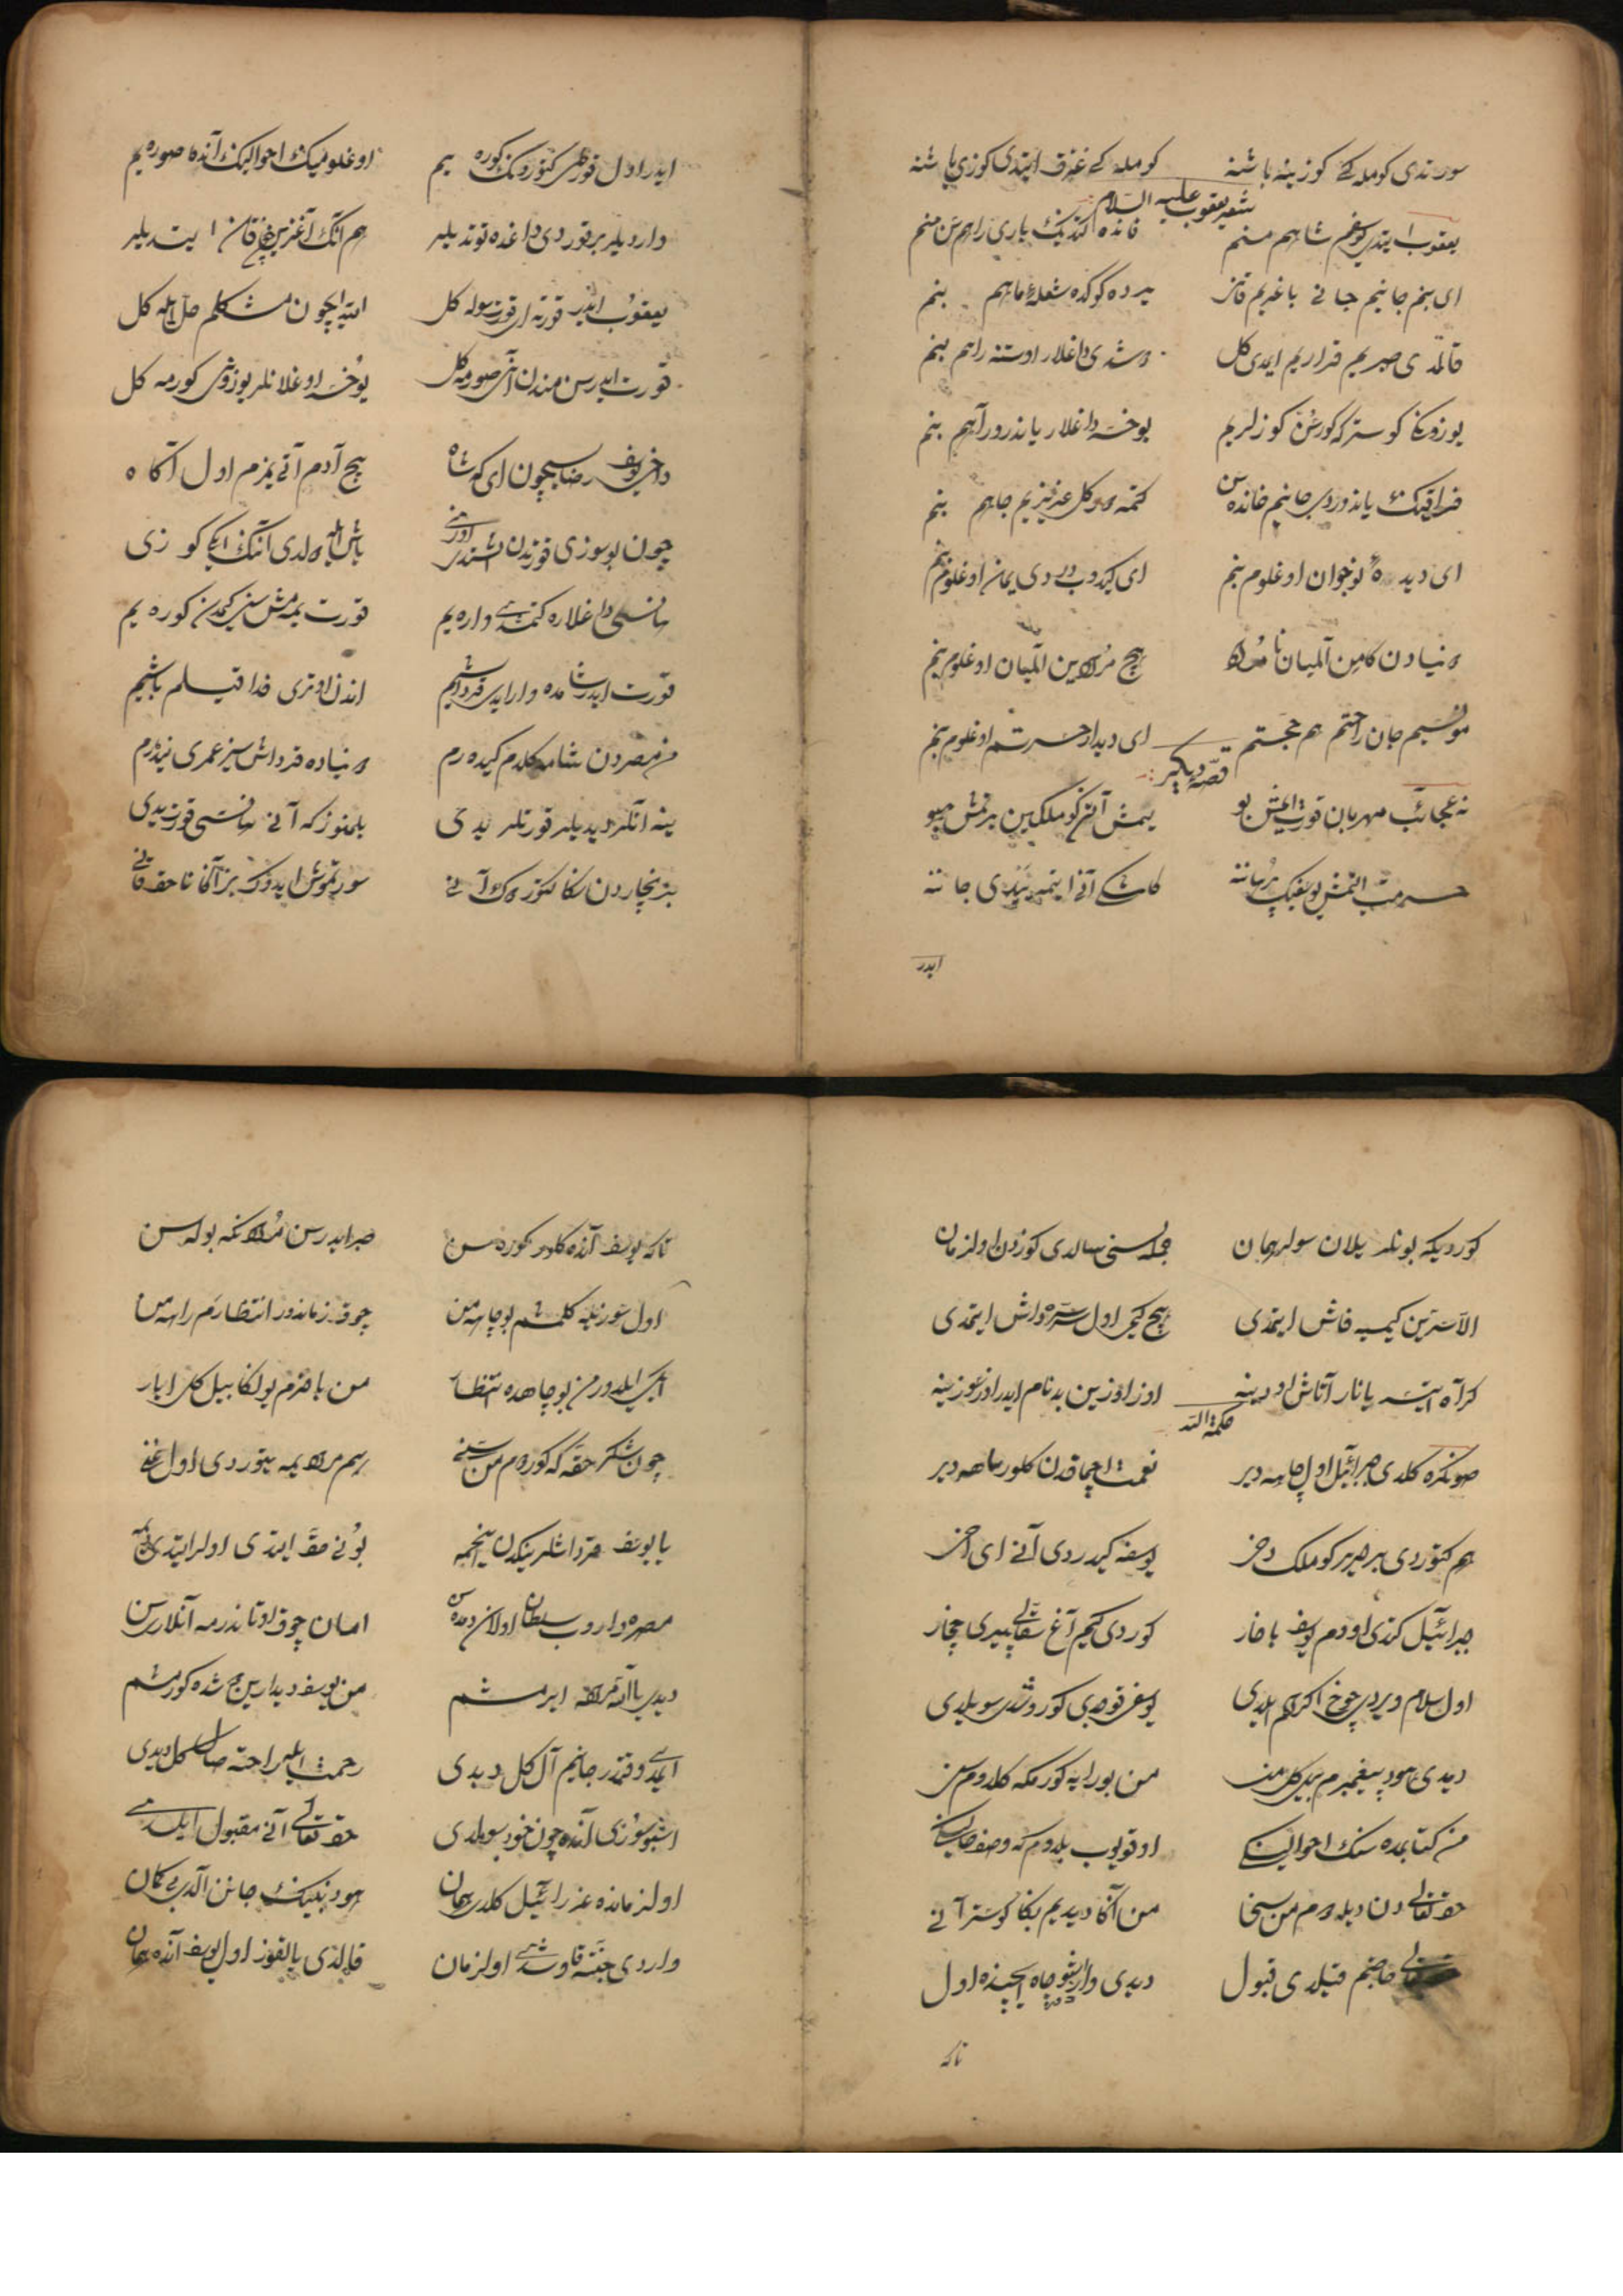 سورتدی کوملکی کوزینه باشنه کوملکی غرق ایتدی کوزی یاشنه
شعر یعقوب علیه السلام
یعقوب ایتدی یوسفم شاهم منم قانده کتدیک یاری راهم سن منم
ای بنم جانیم جانی باغریم قانی یرده کوکده شعلهٔ ماهم بنم
قالمدی صبریم قراریم ایمدی کل دوشدی داغلار اوستنه راهم بنم
یوزوکنی کوستر که کورسن کوزلریم یوخسه داغلار یاندرور آهم بنم
فراقنک یاندوردی جانیم قانده سن کتمه کل عزیزیم جاهم بنم
ای دیدهٔ نوجوان اوغلوم بنم ای کیدوب دردی یمان اوغلوم بنم
دنیادن کامن آلمیان نامراد هیچ مرادین آلمیان اوغلوم بنم
مونسیم جان راحتم هم حجتم ای دیدار حسرتم اوغلوم بنم
قصهٔ دیگر
نه عجائب مهربان قورت ایمش بو یمش آنی کوملکین یرتمش بو
مرحمت ایتمش یوسفک پرهاننه کاشکی آنی ایتمیدی جاننه
ایدر
ایدر اول قورطی کتورونک کوره یم اوغلومیک احوالینک آنده صوره یم
واردیلر بر قوردی داغده توتدیلر هم انک آغزین قان ایتدیلر
یعقوب ایدر قورته ای قورت سویله کل ایتدیکچون مشکلم حل ایله کل
قورت ایدر سن مندن آنی صورمه کل یوخسه اوغلانلر یوزونی کورمه کل
داخی یوسف رضاسیچون ای که شاه هیچ آدم آتی یمزم اول آکاه
چون بو سوزی قورتدن اشتدی باش آلدی آنک ایکی کوزی
هانسی داغلاره کتمدی واره یم قورت یمه مش سنی کیمدن کوره یم
قورت ایدر شامده وار ایدی قرداشیم اندن اوتری فدا قیلم باشیم
من مصردن شامه کلدم کیده رم دنیاده قرداش سیز عمری نیدرم
ینه انلر دیدیلر قورتلر یدی بلمنوز که آنی هانسی قورت یدی
بز نچاردن سکا کتوردک آنی سورتموش ایدوک بز آکا ناحق قانی
کوردیکه بونلر یلان سولر همان جمله سنی سالدی کوزدن اولزمان
الا سرین کیمیه فاش ایتمدی هیچ کیمی اول سره واش ایتمدی
کر آه ایتسه یانار آتاش اودینه اوز اوزین بدنام ایدر اوز عوزینه
حکمة الله
صونکره کلدی جبرائیل اول چاهه دیر نعمت اچماقدن کلور شاهه دیر
هم کتوردی بر حریر کوملک دخی یوسفه کیدردی آنی ای اخی
جبرائیل کتدی اودم یوسف باخار کوردی کیم آغ سقالی پیری چخار
اول سلام ویردی چوخ اکرام ایلدی یوسفی قوجدی کوروشدی سویلدی
دیدی هود پیغمبرم بیل کل من من بورایه کورمکه کلدوم سنی
من کتابمده سنک احوالینی اوقویوب بلدوم که وصف حالینی
حق تعالی دن دیله دم من سخا من آکا دیدیم بکا کوستر آنی
حق تعالی حاجتیم قیلدی قبول دیدی وار شو چاه ایچنده اول
تا که
تا که یوسف آنده کلور کوره سن صبر ایدرسن مرادنکه بوله سن
اول سوزیله کلمشم بو چاهه من چوق زماندور انتظارم راهه من
ایکی ییلدور من بو چاهده انتظار من باخارم یولکا بیل کل ای یار
چون شکر حقه که کوردوم من سنی هم مرادیمه یتوردی اول غنی
یا یوسف قرداشلرینکدن اینجمه بونی حق ایتدی اولر ایتدی دیمه
مصره واروب سلطان اولان دمده سن امان چوق اوتاندرمه آنلاری سن
دیدی یا الله مراده ایرمشم من یوسف دیدارین خوش شده کورمشم
ایمدی وقتدر جانیم آل کل دیدی رحمت ایله راحته صال کل دیدی
اشبو سوزی آنده چون خود سویلدی حق تعالی آنی مقبول ایلدی
اولزمانده عزرائیل کلدی همان هود نبینک جانن آلدی بی کمان
واردی جنته قاوشدی اولزمان قالدی یالقوز اول یوسف آنده همان